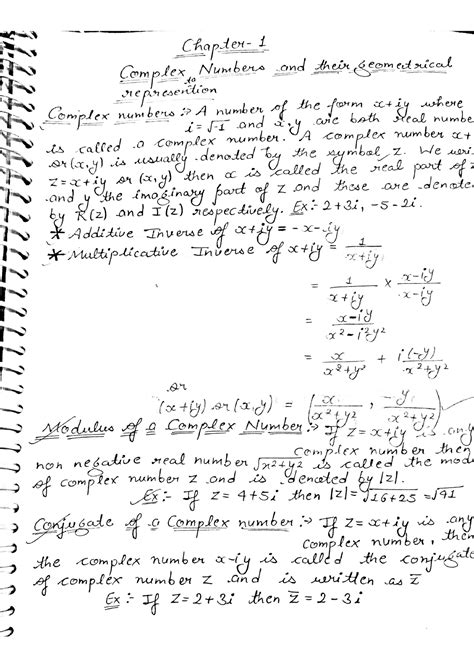 Chapter-1
Complex Numbers and their Geometrical
to
represention
Complex numbers :- A number of the form x+iy where
i=√-1 and x,y are both real numbe
is called a complex number. A complex number x+
or (x,y) is usually denoted by the symbol z. We wri
z=x+iy or (x,y) then x is called the real part of z
and y the imaginary part of z and these are denote
by R(z) and I(z) respectively. Ex:- 2+3i, -5-2i.
* Additive Inverse of x+iy = -x-iy
* Multiplicative Inverse of x+iy = 1/(x+iy)
= 1/(x+iy) × (x-iy)/(x-iy)
= (x-iy)/(x²-i²y²)
= x/(x²+y²) + i(-y)/(x²+y²)
or
(x+iy) or (x,y) = (x/(x²+y²), -y/(x²+y²))
Modulus of a Complex Number :- If z=x+iy is any
complex number then
non negative real number √x²+y² is called the mod
of complex number z and is denoted by |z|.
Ex:- If z=4+5i then |z|=√16+25=√41
Conjugate of a Complex number :- If z=x+iy is any
complex number, then
the complex number x-iy is called the conjugate
of complex number z and is written as z̄
Ex:- If z=2+3i then z̄=2-3i